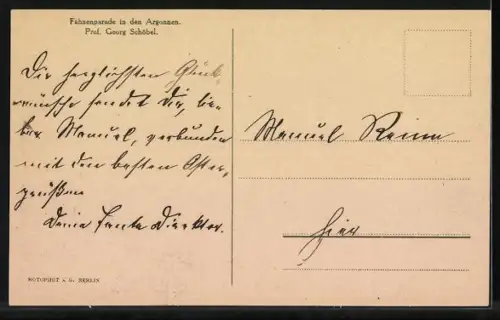 Fahnenparade in den Argonnen.
Prof. Georg Schöbel.
Die herzlichsten Glück-
wünsche sendet Dir, lie-
ber Manuel, verbunden
mit den besten Oster-
grüßen
Deine Tante Direktor.
Manuel
hier
ROTOPHOT A. G. BERLIN